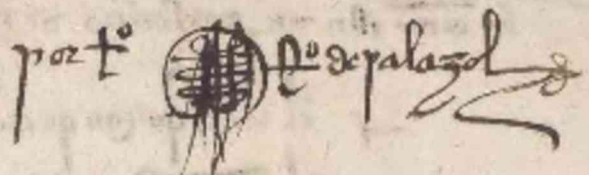 por tº fº de palazol